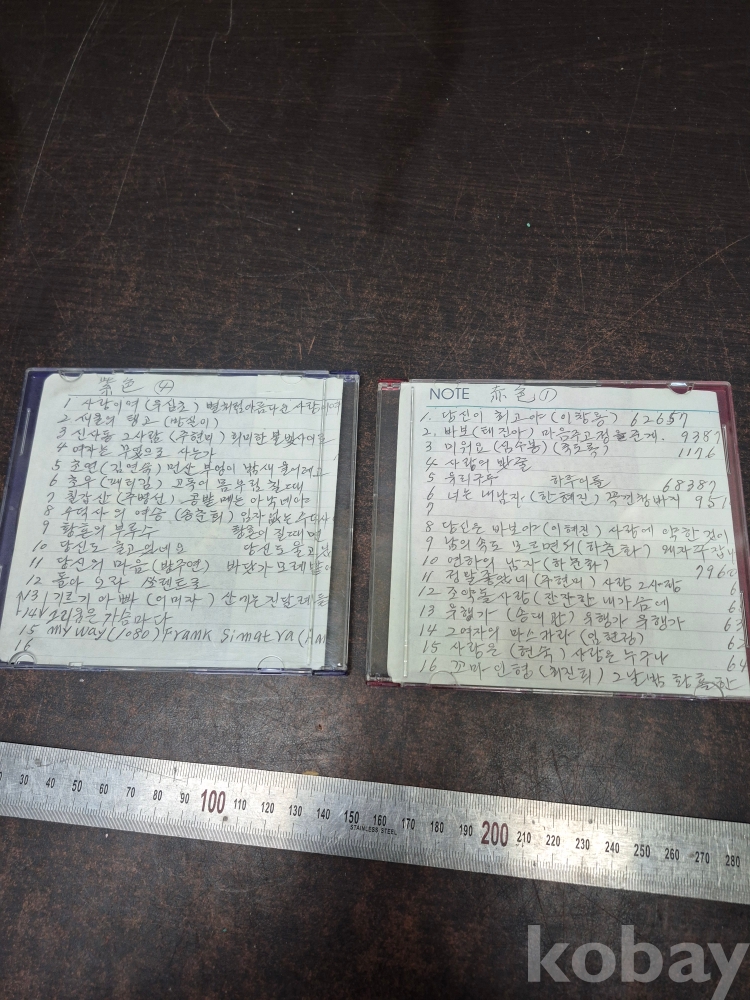 紫色 ④
1 사랑이여 (유심초) 별처럼 아름다운 사랑이여
2 서울의 탱고 (방실이)
3 신사동 그사람 (주현미) 희미한 불빛사이로
4 여자는 무엇으로 사는가
5 초연 (김연숙) 먼산 부엉이 밤새 울어대고
6 초우 (패티김) 고독이 몸부림 칠때
7 칠갑산 (주병선) 콩밭 매는 아낙네야
8 수덕사의 여승 (송춘희) 임자없는 수덕사
9 황혼의 부루스 황혼이 질때면
10 당신도 울고 있네요 당신도 울고
11 당신의 마음 (방주연) 바닷가 모래밭에
12 돌아 오라 쏘렌토로
13 기르기 아빠 (이미자) 산에는 진달래
14 그리움은 가슴마다
15 my way (1080) Frank Simatra
16
NOTE 赤色 ①
1. 당신이 최고야 (이창용) 62657
2. 바보 (태진아) 마음주고 정을준게. 9387
3 미워요 (심수봉) 1176
4 사랑의 밧줄
5 유리구두 하유아들 68387
6 너는 내남자. (한혜진) 951
7
8 당신은 바보야 (이혜진) 사랑에 약한것이
9 남의 속도 모르면서 (하춘화) 왜자꾸
10 연하의 남자 (하춘화) 796
11 정말 좋았네 (주현미) 사랑 그사랑
12 조약돌 사랑 (잔잔한 내가슴에
13 유행가 (송대관) 유행가 유행가
14 그여자의 마스카라 (임현정)
15 사랑은 (현숙) 사랑은 누구나
16 꼬마 인형 (최진희) 그날밤 황홀한
0 30 40 50 60 70 80 90 100 110 120 130 140 150 160 170 180 190 200 210 220 230 240 250 260 270 280
STAINLESS STEEL
kobay